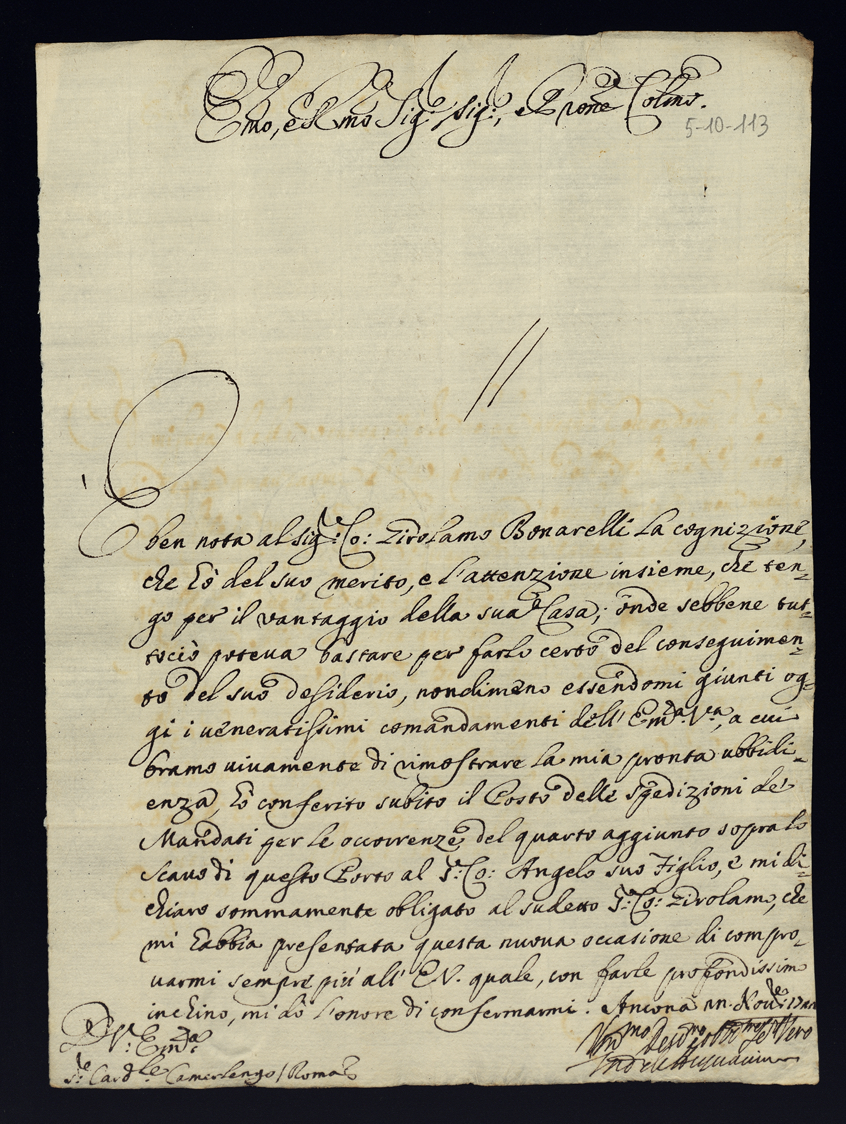 Emo, e Rmo Sig.r, Sig.r, e Prone Colmo.
5-10-113
È ben nota al Sig.r Co: Girolamo Bonarelli la cognizione,
che hò del suo merito, e l'attenzione insieme, che ten-
go per il vantaggio della sua Casa; onde sebbene tut-
tociò poteva bastare per farlo certo del conseguimen-
to del suo desiderio, nondimeno essendomi giunti og-
gi i veneratissimi comandamenti dell' Em.za V.ra, a cui
bramo vivamente di rimostrare la mia pronta ubbidi-
enza, hò conferito subito il Posto delle Spedizioni de'
Mandati per le occorrenze del quarto aggiunto sopra lo
scavo di questo Porto al S.r Co: Angelo suo Figlio, e mi di-
chiaro sommamente obligato al sudetto S.r Co: Girolamo, che
mi habbia presentata questa nuova occasione di compro-
varmi sempre più all' E.V. quale, con farle profondissimo
inchino, mi dò l'onore di confermarmi. Ancona Nov.re
D V. Em.za
S.r Card.le Camerlengo / Roma
Um.mo Dev.mo Serv.re Vero